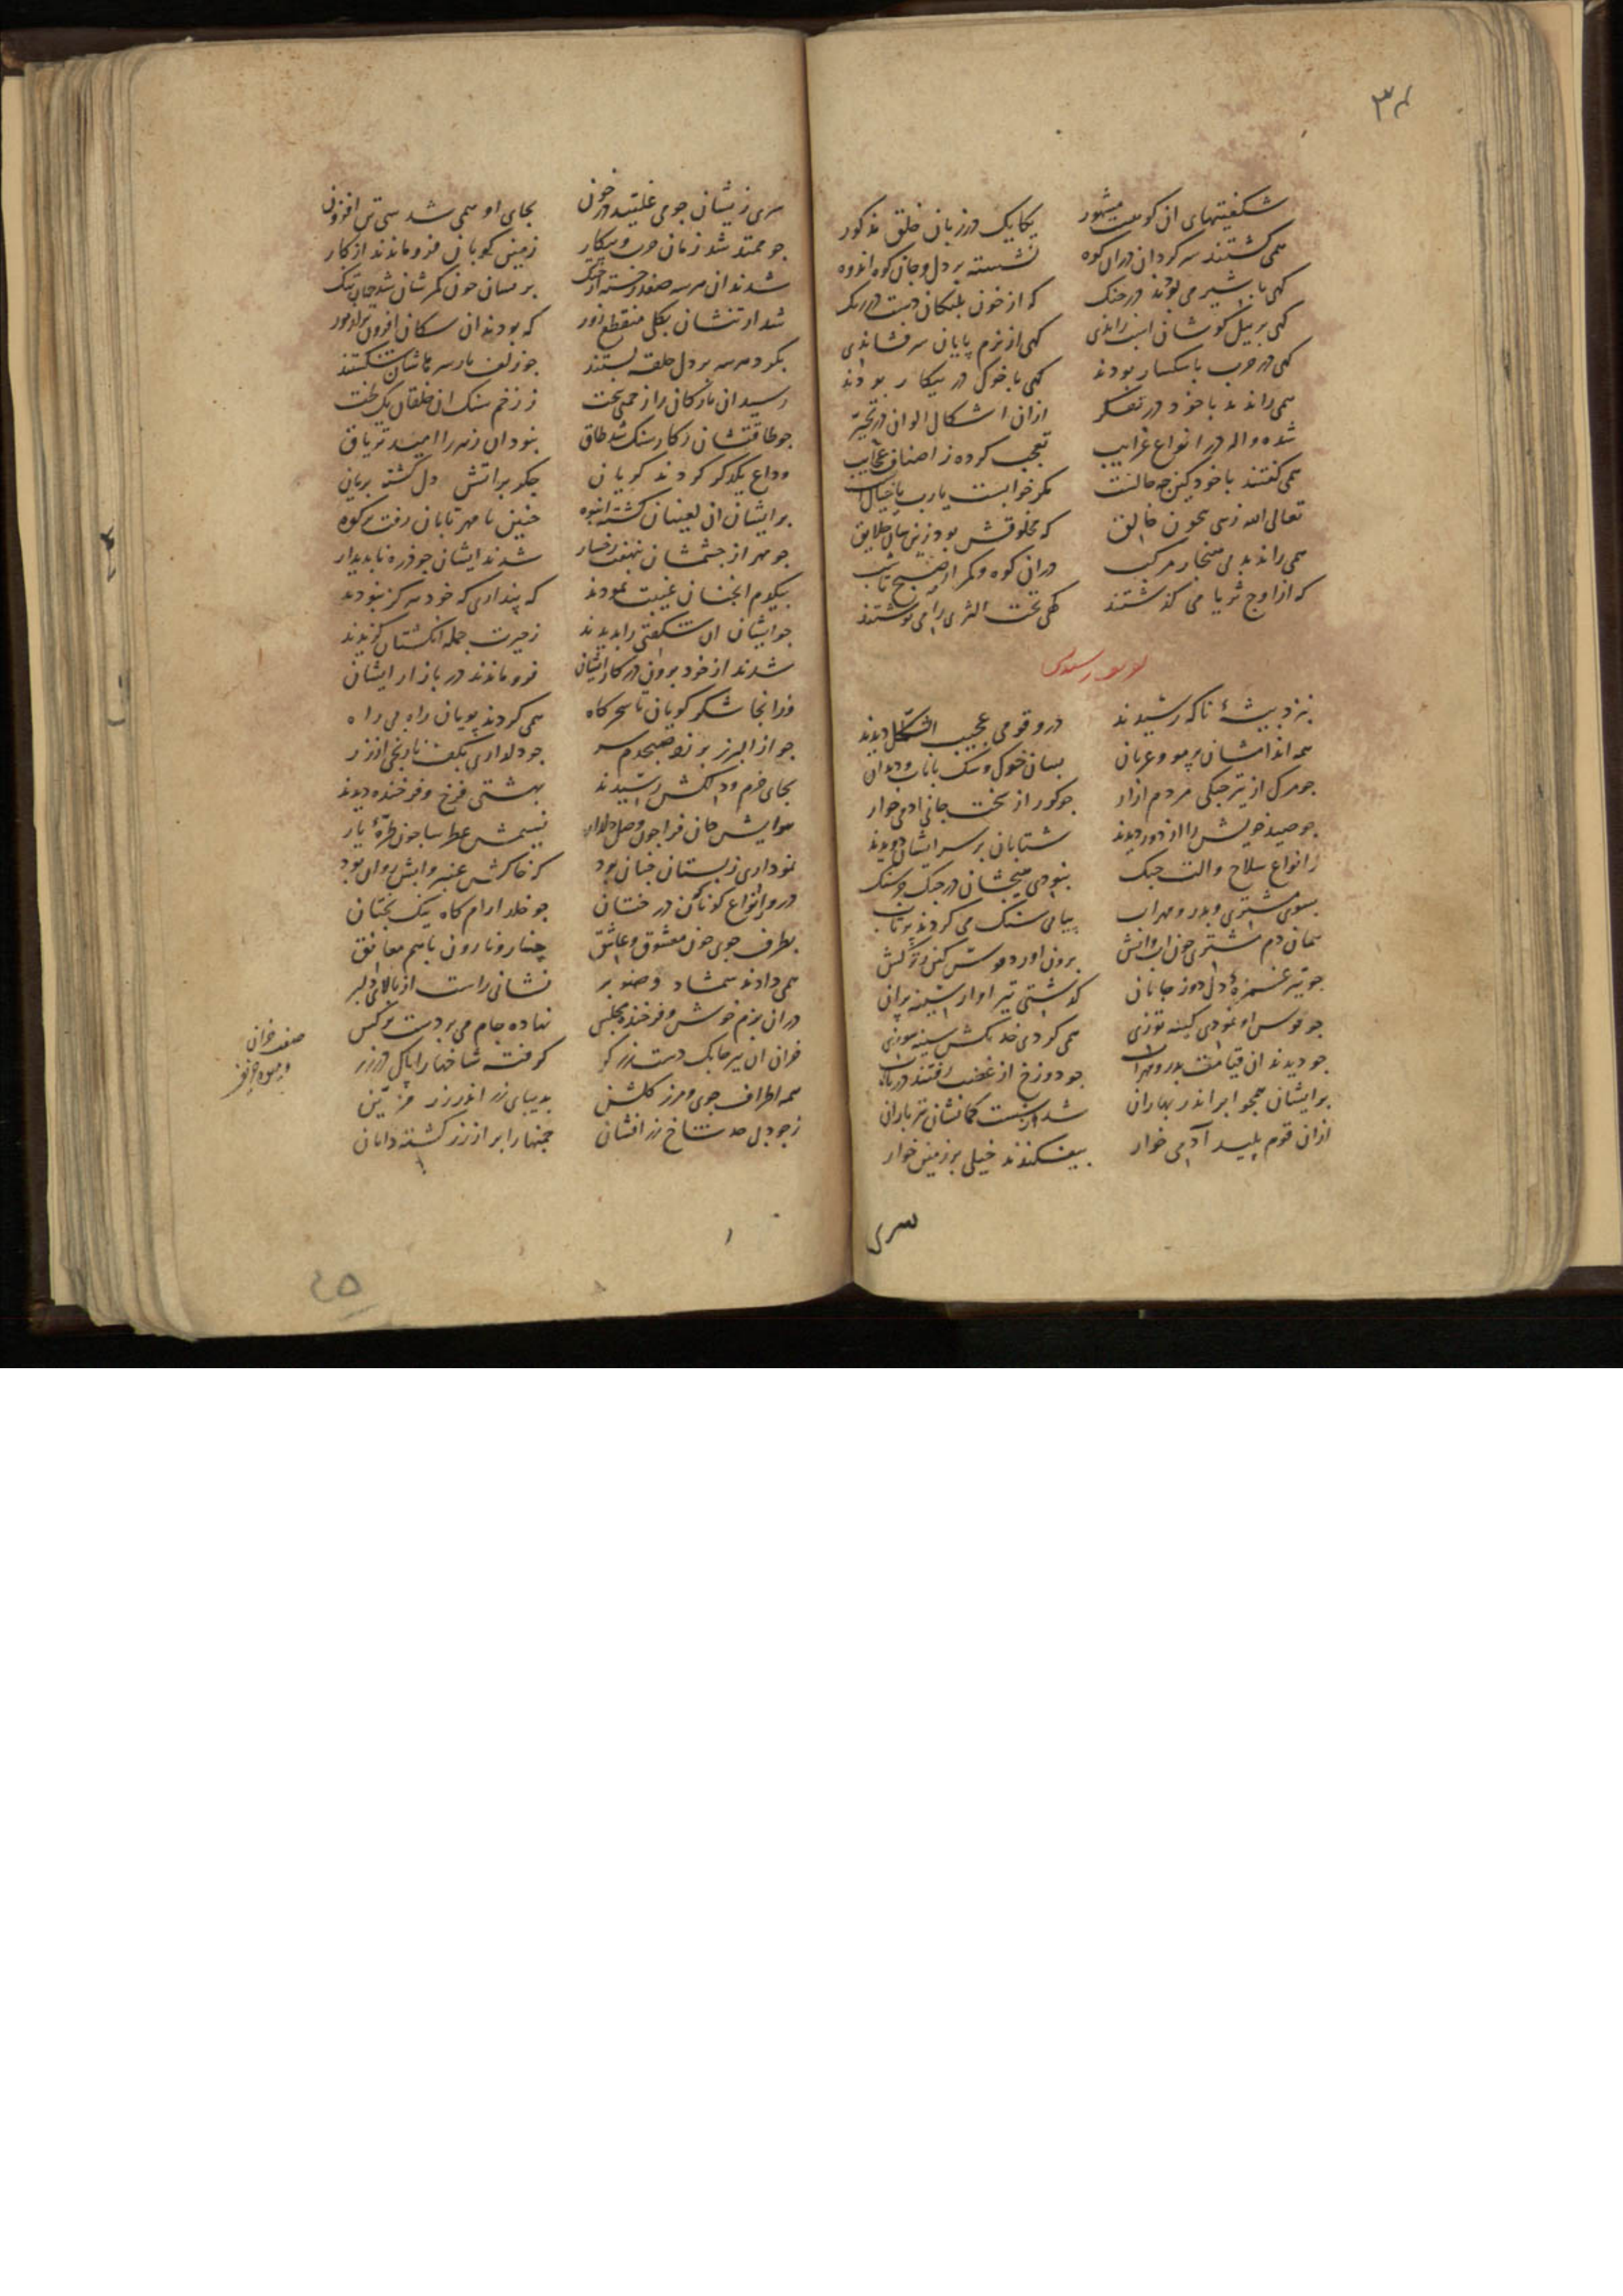 ۳۴
شکفتیهای ان کوهست مشهور
یکایک در زبان خلق مذکور
همی کشتند سر کردان دران کوه
نشسته بر دل و جان کوه اندوه
کهی با شیر می بودند در جنک
که از خون پلنکان دست در رنک
کهی بر پیل کوشان اسب راندی
کهی از نرم پایان سر فشاندی
کهی در حرب با سکسار بودند
کهی با خوک در پیکار بودند
همی راندند با خود در تفکر
ازان اشکال الوان در تحیر
شده واله در انواع غرایب
تعجب کرده ز اصناف عجایب
همی کفتند با خود کین چه حالست
مکر خوابست یارب یا خیال است
تعالی الله زهی بیچون خالق
که مخلوقش بود زین سان خلایق
همی راندند می مرکب
دران کوه و کمر از صبح تا شب
که از اوج ثریا می کذشتند
کهی تحت الثری را می نوشتند
بنزد بیشهٔ ناکه رسیدند
درو قومی عجیب الشکل دیدند
همه اندامشان پر مو و عریان
بسان خوک و سک با ناب و دندان
جو مرک از تیز جنکی مردم ازار
جو کور از سخت جانی ادمی خوار
جو صید خویش را از دور دیدند
شتابان بر سر ایشان دویدند
ز انواع سلاح و الت جنک
نبودی هیچشان در جنک جز سنک
بسوی مشتری و بدر و مهراب
پیاپی سنک می کردند پرتاب
همان دم مشتری چون اب و اتش
برون اورد قوس کین ز ترکش
جو تیر غمزهٔ دل دوز جانان
کذشتی تیر او از سینه پران
جو قوس او نمودی کینه توزی
همی کردی خدنکش سینه سوزی
جو دیدند ان قیامت بدر و مهراب
جو دوزخ از غضب رفتند در تاب
بر ایشان همجو ابر اندر بهاران
شد از شست کمانشان تیر باران
ازان قوم پلید آدمی خوار
بیفکندند خیلی بر زمین خوار
سری
سری زیشان جو می غلتید در خون
بجای او همی شد سی تن افزون
جو ممتد شد زمان حرب و پیکار
زمین کوبان فرو ماندند از کار
شدند ان هر سه صفدر خسته از جنک
بر میسان چون کمرشان شد جهان تنک
شد از تنشان بکلی منقطع زور
که بودند ان سکان افزون تر از مور
بکرد هر سه بر دل حلقه بستند
جو زلف یار سر تا شان شکستند
رسید ان نازکان را از غمی سخت
ز زخم سنک ان خلقان یک لخت
جو طاقتشان ز کار سنک شد طاق
نبود ان زهر را امید تریاق
وداع یکدکر کردند کریان
جکر بر اتش دل کشته بریان
بر ایشان ان لعینان کشته انبوه
چنین تا مهر تابان رفت در کوه
جو مهر از چشمشان بنهفت رخسار
شدند ایشان جو ذره ناپدیدار
بیکدم انجنان غیبت نمودند
که پنداری که خود هرکز نبودند
جو ایشان ان شکفتی را بدیدند
ز حیرت جمله انکشتان کزیدند
شدند از خود برون در کار ایشان
فرو ماندند در بازار ایشان
وز انجا شکر کویان تا سحرکاه
همی کردند پویان راه بی راه
جو از البرز بر زد صبحدم سر
جو دلداری بکف نارنجی از زر
بجای خرم و دلکش رسیدند
بهشتی فرخ و فرخنده دیدند
هوایش جان فزا جون وصل دلدار
نسیمش عطرسا جون طرهٔ یار
نموداری ز بستان جنانی بود
کز خاکش عنبر و ابش روان بود
درو انواع کوناکون درختان
جو خلد ارام کاه نیک بختان
بطرف جوی چون معشوق و عاشق
چنار و نارون باهم معانق
همی دادند شمشاد و صنوبر
نشانی راست از بالای دلبر
دران بزم خوش و فرخنده مجلس
نهاده جام می بر دست نرکس
خزان ان پیر جابک دست زرکر
کرفته شاخها را پاک در زر
همه اطراف جوی و مرز کلشن
بدیبای زر اندر زر مزین
ز جود دل هر شاخ زر افشان
چمنها را بر از زر کشته دامان
صفت خزان
و میوه
۲۵